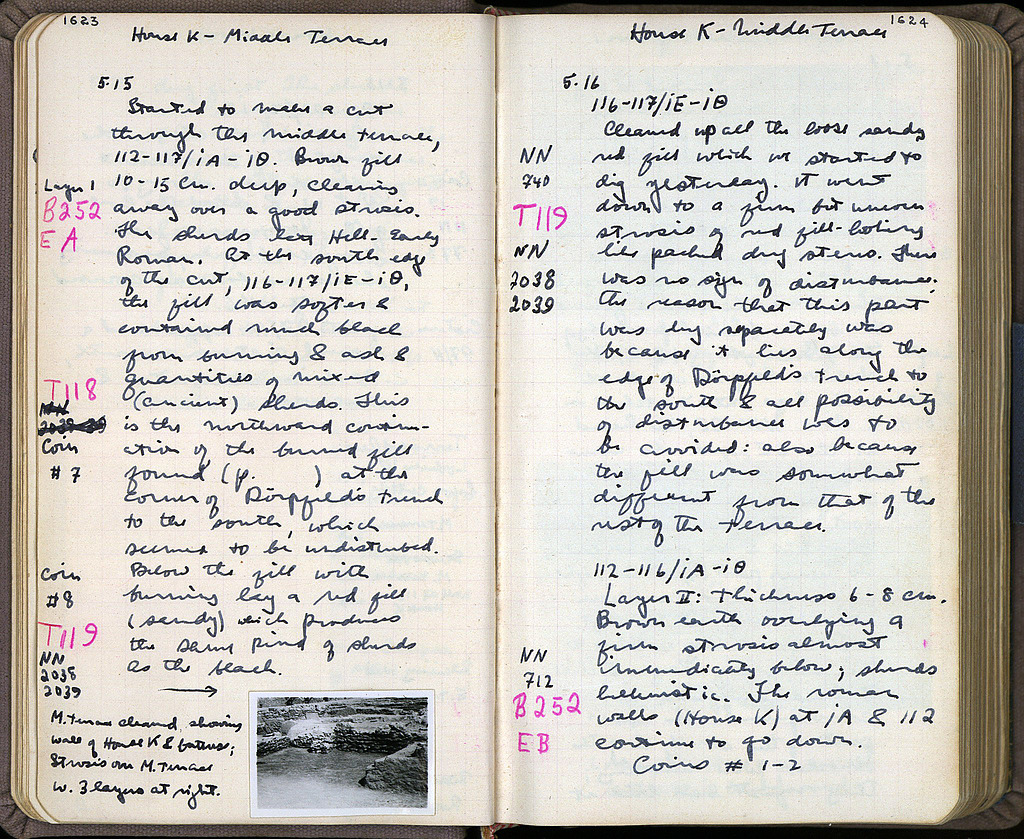 1623
House K - Middle Terrace
5.15
Started to make a cut
through the middle terrace,
112-117/ιA-ιΘ. Brown fill
Layer 1
10-15 cm. deep, clearing
B252
away over a good strosis.
E A
The sherds late Hell. - Early
Roman. At the south edge
of the cut, 116-117/ιE-ιΘ,
the fill was softer &
contained much black
from burning & ash &
quantities of mixed
T118
(ancient) sherds. This
NN
is the northward contin-
2038-39
Coin
ation of the burned fill
#7
found (p. ) at the
corner of Dörpfeld's trench
to the south, which
seemed to be undisturbed.
Coin
Below the fill with
#8
burning lay a red fill
T119
(sandy) which produces
NN
the same kind of sherds
2038
as the black.
2039
→
M. Terrace cleared, showing
wall of House K & pateress;
Strosis on M. Terrace
w. 3 layers at right.
1624
House K - Middle Terrace
5.16
116-117/ιE-ιΘ
Cleaned up all the loose sandy
NN
red fill which we started to
740
dig yesterday. It went
T119
down to a firm but uneven
strosis of red fill - looking
NN
like packed dry stereo. There
2038
was no sign of disturbance.
2039
The reason that this part
was dug separately was
because it lies along the
edge of Dörpfeld's trench to
the south & all possibility
of disturbance was to
be avoided: also because
the fill was somewhat
different from that of the
rest of the terrace.
112-116/ιA-ιΘ
Layer II: thickness 6-8 cm.
Brown earth overlying a
firm strosis almost
NN
immediately below; sherds
712
hellenistic. The roman
B252
walls (House K) at ιA & 112
EB
continue to go down.
Coins # 1-2